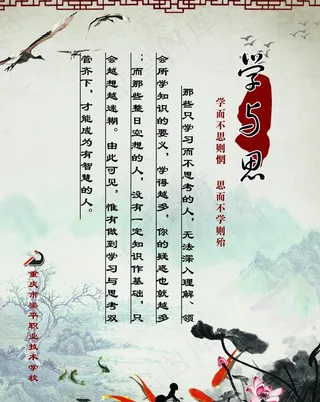 学与思
学而不思则惘　思而不学则殆
那些只学习而不思考的人，无法深入理解、领
会所学知识的要义，学得越多，你的疑惑也就越多
；而那些整日空想的人，没有一定知识作基础，只
会越想越迷糊。由此可见，惟有做到学习与思考双
管齐下，才能成为有智慧的人。
重庆市梁平职业技术学校